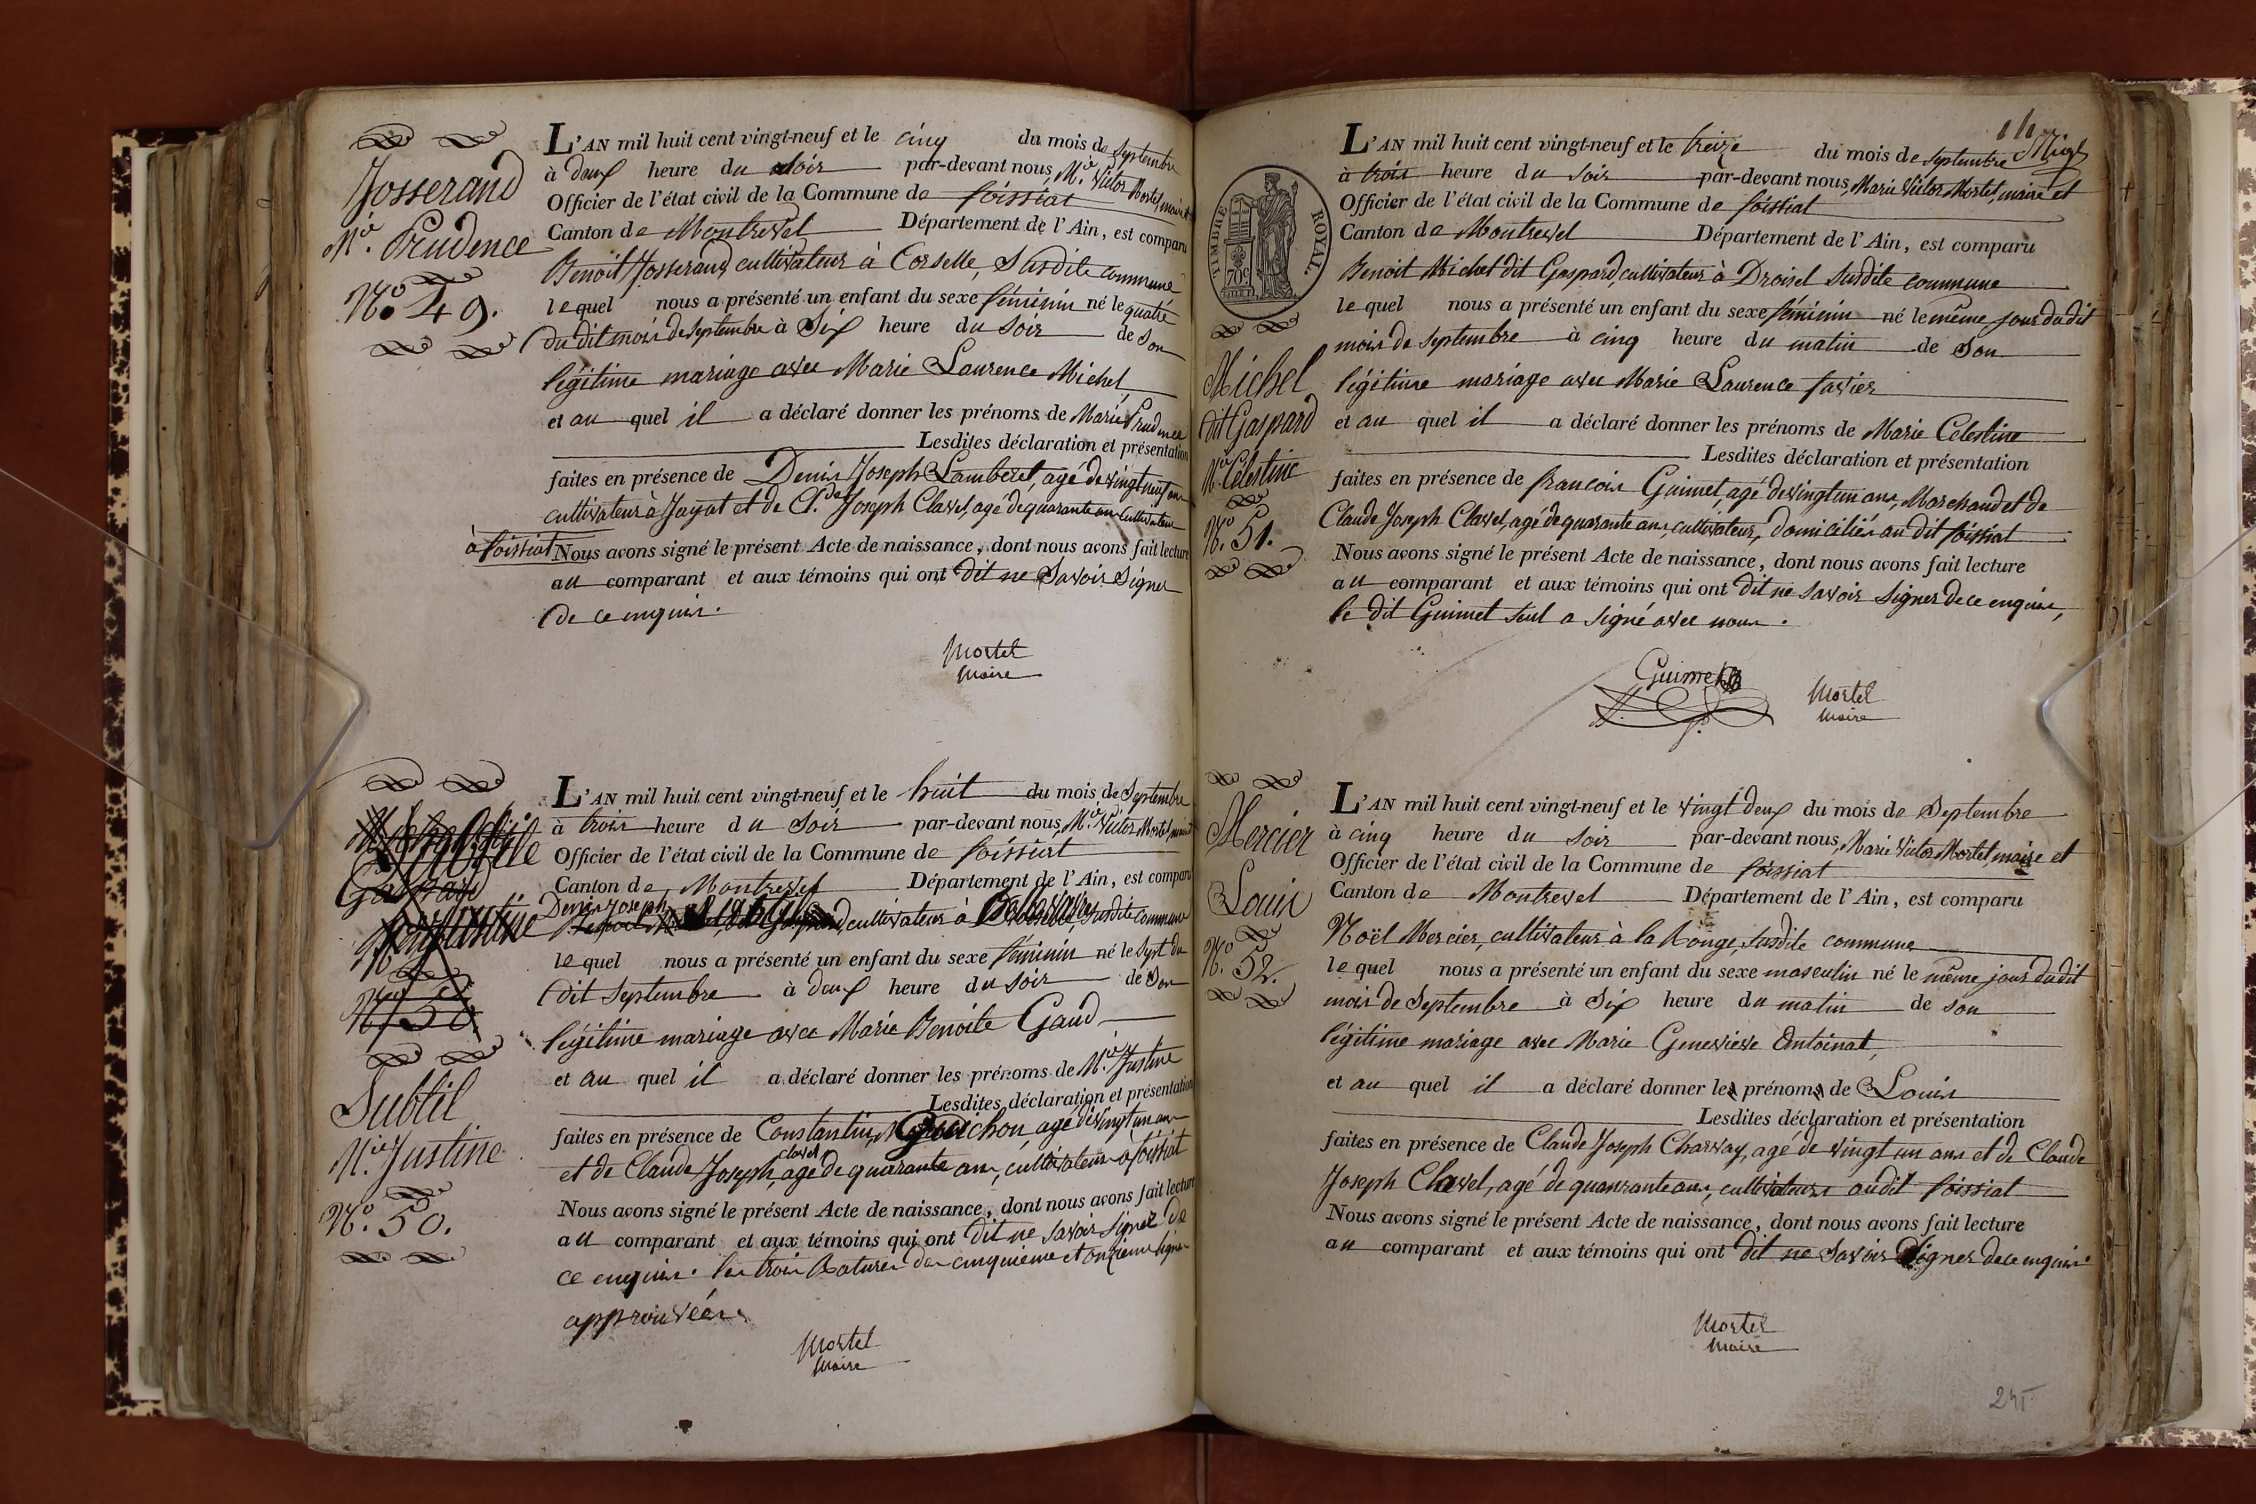 Josserand
M.ie Prudence
N.o 49.
L'AN mil huit cent vingt-neuf et le cinq du mois de Septembre
à deux heure du soir par-devant nous, M.ie Victor Mortel, maire et
Officier de l'état civil de la Commune de foissiat
Canton de Montrevel Département de l'Ain, est comparu
Benoit Josserand, cultivateur à Corselle, Susdite commune
lequel nous a présenté un enfant du sexe féminin né le quatre
du dit mois de septembre à Six heure du Soir de Son
légitime mariage avec Marie Laurence Michel,
et au quel il a déclaré donner les prénoms de Marie Prudence
Lesdites déclaration et présentation
faites en présence de Denis Joseph Lamberet, agé de vingt neuf ans
cultivateur à Jayat et de Cl.de Joseph Clavel, agé de quarante ans cultivateur
à foissiat Nous avons signé le présent Acte de naissance, dont nous avons fait lecture
au comparant et aux témoins qui ont dit ne Savoir Signer
de ce enquis.
Mortel
Maire
Gaspard
N.o 50
Subtil
M.ie Justine
N.o 50.
L'AN mil huit cent vingt-neuf et le huit du mois de Septembre
à trois heure du Soir par-devant nous, M.ie Victor Mortel, maire et
Officier de l'état civil de la Commune de foissiat
Canton de Montrevel Département de l'Ain, est comparu
Denis Joseph
cultivateur à susdite commune
lequel nous a présenté un enfant du sexe féminin né le Sept du
dit Septembre à deux heure du Soir de Son
légitime mariage avec Marie Benoite Gaud
et au quel il a déclaré donner les prénoms de M.ie Justine
Lesdites déclaration et présentation
faites en présence de Constantin Guichon, agé de vingt un ans
clavel
et de Claude Joseph, agé de quarante ans, cultivateurs à foissiat
Nous avons signé le présent Acte de naissance, dont nous avons fait lecture
au comparant et aux témoins qui ont dit ne savoir signer de
ce enquis. les trois Ratures des cinquieme et onzieme lignes
approuvées
Mortel
Maire
TIMBRE ROYAL
70c
Michel
dit Gaspard
M.ie Célestine
N.o 51.
L'AN mil huit cent vingt-neuf et le treize du mois de septembre
à trois heure du soir par-devant nous, Marie Victor Mortel, maire et
Officier de l'état civil de la Commune de foissiat
Canton de Montrevel Département de l'Ain, est comparu
Benoit Michel dit Gaspard, cultivateur à Droisel susdite commune
lequel nous a présenté un enfant du sexe féminin né le même jour du dit
mois de septembre à cinq heure du matin de Son
légitime mariage avec Marie Laurence favier
et au quel il a déclaré donner les prénoms de Marie Célestine
Lesdites déclaration et présentation
faites en présence de francois Guimet, agé de vingt un ans, Marchand et de
Claude Joseph Clavel, agé de quarante ans, cultivateur, domiciliés au dit foissiat
Nous avons signé le présent Acte de naissance, dont nous avons fait lecture
au comparant et aux témoins qui ont dit ne savoir signer de ce enquis,
le dit Guimet seul a signé avec nous.
Guimet
Mortel
Maire
Mercier
Louis
N.o 52.
L'AN mil huit cent vingt-neuf et le vingt deux du mois de Septembre
à cinq heure du soir par-devant nous, Marie Victor Mortel, maire et
Officier de l'état civil de la Commune de foissiat
Canton de Montrevel Département de l'Ain, est comparu
Noël Mercier, cultivateur à la Ronge, susdite commune
lequel nous a présenté un enfant du sexe masculin né le même jour du dit
mois de Septembre à Six heure du matin de son
légitime mariage avec Marie Genevieve Antoinat,
et au quel il a déclaré donner les prénoms de Louis
Lesdites déclaration et présentation
faites en présence de Claude Joseph Charvay, agé de vingt un ans et de Claude
Joseph Clavel, agé de quanrante ans, cultivateurs au dit foissiat
Nous avons signé le présent Acte de naissance, dont nous avons fait lecture
au comparant et aux témoins qui ont dit ne savoir Signer de ce enquis.
Mortel
Maire